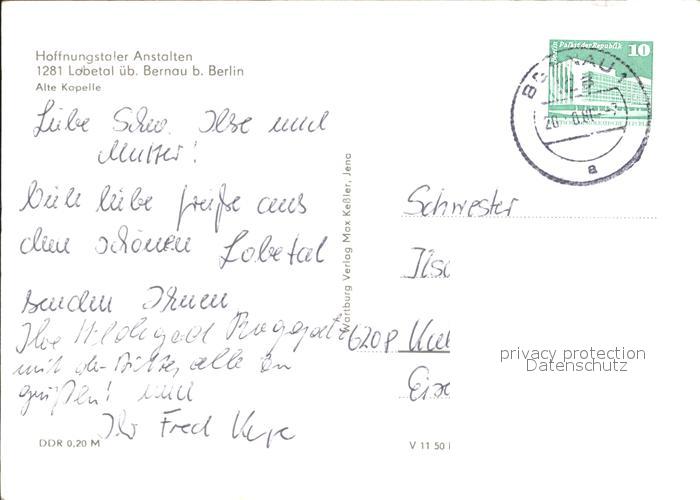 Hoffnungstaler Anstalten
1281 Lobetal üb. Bernau b. Berlin
Alte Kapelle
Liebe Schw. Ilse und
Mutter!
Viele liebe Grüße aus
dem schönen Lobetal
senden Ihnen
Ihre Hildegard
mit der Bitte, alle zu
grüßen! und
Ihr Fred
DDR 0,20 M
Wartburg Verlag Max Keßler, Jena
Berlin Palast der Republik 10
BERNAU 1
a
Schwester
Ilse
6208
V 11 50
privacy protection
Datenschutz